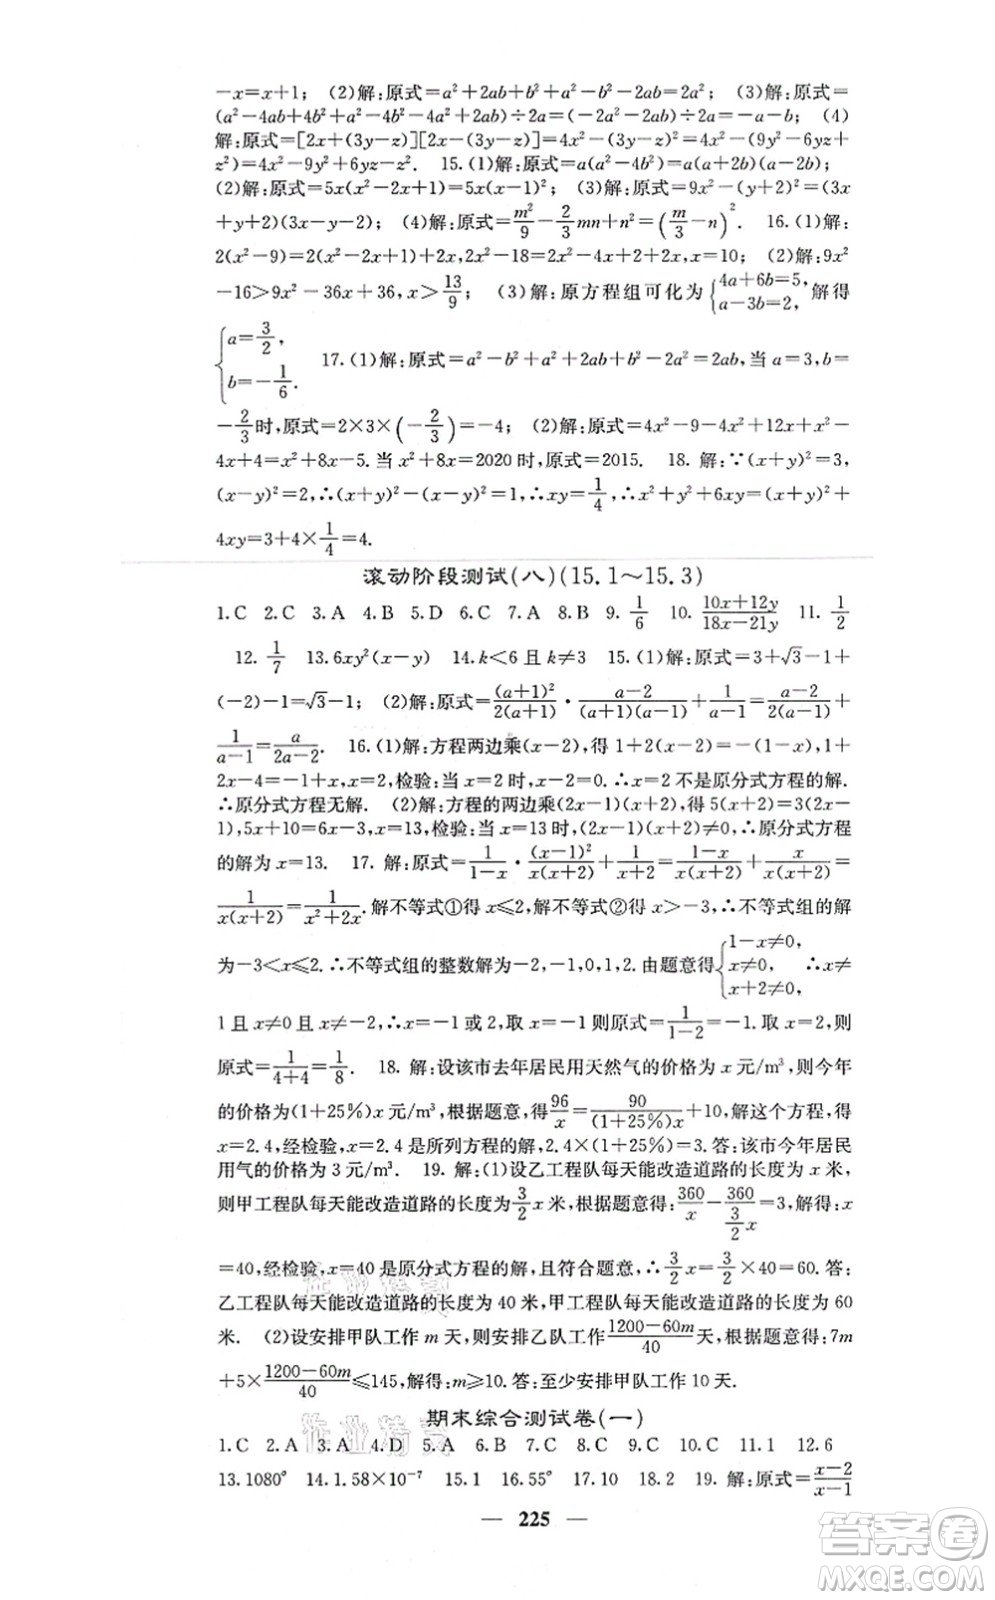 －x=x+1; (2)解:原式=a²+2ab+b²+a²-b²-2ab=2a²; (3)解:原式=
(a²-4ab+4b²+a²-4b²-4a²+2ab)÷2a=(-2a²-2ab)÷2a=-a-b; (4)
解:原式=[2x+(3y-z)][2x-(3y-z)]=4x²-(3y-z)²=4x²-(9y²-6yz+
z²)=4x²-9y²+6yz-z². 15.(1)解:原式=a(a²-4b²)=a(a+2b)(a-2b);
(2)解:原式=5x(x²-2x+1)=5x(x-1)²; (3)解:原式=9x²-(y+2)²=(3x
+y+2)(3x-y-2); (4)解:原式=m²/9-2/3mn+n²=(m/3-n)². 16.(1)解:
2(x²-9)=2(x²-2x+1)+2x,2x²-18=2x²-4x+2+2x,x=10; (2)解:9x²
-16>9x²-36x+36,x>13/9; (3)解:原方程组可化为{4a+6b=5, a-3b=2,解得
{a=3/2, b=-1/6. 17.(1)解:原式=a²-b²+a²+2ab+b²-2a²=2ab,当a=3,b=
-2/3时,原式=2×3×(-2/3)=-4; (2)解:原式=4x²-9-4x²+12x+x²-
4x+4=x²+8x-5.当x²+8x=2020时,原式=2015. 18.解:∵(x+y)²=3,
(x-y)²=2,∴(x+y)²-(x-y)²=1,∴xy=1/4,∴x²+y²+6xy=(x+y)²+
4xy=3+4×1/4=4.
滚动阶段测试(八)(15.1～15.3)
1.C 2.C 3.A 4.B 5.D 6.C 7.A 8.B 9.1/6 10.(10x+12y)/(18x-21y) 11.1/2
12.1/7 13.6xy²(x-y) 14.k<6且k≠3 15.(1)解:原式=3+√3-1+
(-2)-1=√3-1; (2)解:原式=(a+1)²/2(a+1)·(a-2)/(a+1)(a-1)+1/(a-1)=(a-2)/2(a-1)+
1/(a-1)=a/(2a-2). 16.(1)解:方程两边乘(x-2),得1+2(x-2)=-(1-x),1+
2x-4=-1+x,x=2,检验:当x=2时,x-2=0.∴x=2不是原分式方程的解.
∴原分式方程无解. (2)解:方程的两边乘(2x-1)(x+2),得5(x+2)=3(2x-
1),5x+10=6x-3,x=13,检验:当x=13时,(2x-1)(x+2)≠0,∴原分式方程
的解为x=13. 17.解:原式=1/(1-x)·(x-1)²/x(x+2)+1/(x+2)=(1-x)/x(x+2)+x/x(x+2)=
1/x(x+2)=1/(x²+2x).解不等式①得x≤2,解不等式②得x>-3,∴不等式组的解
为-3<x≤2.∴不等式组的整数解为-2,-1,0,1,2.由题意得{1-x≠0, x≠0, x+2≠0,∴x≠
1且x≠0且x≠-2,∴x=-1或2,取x=-1则原式=1/(1-2)=-1.取x=2,则
原式=1/(4+4)=1/8. 18.解:设该市去年居民用天然气的价格为x元/m³,则今年
的价格为(1+25%)x元/m³,根据题意,得96/x=90/(1+25%)x+10,解这个方程,得
x=2.4,经检验,x=2.4是所列方程的解,2.4×(1+25%)=3.答:该市今年居民
用气的价格为3元/m³. 19.解:(1)设乙工程队每天能改造道路的长度为x米,
则甲工程队每天能改造道路的长度为3/2x米,根据题意得:360/x-360/(3/2x)=3,解得:x
=40,经检验,x=40是原分式方程的解,且符合题意,∴3/2x=3/2×40=60.答:
乙工程队每天能改造道路的长度为40米,甲工程队每天能改造道路的长度为60
米. (2)设安排甲队工作m天,则安排乙队工作(1200-60m)/40天,根据题意得:7m
+5×(1200-60m)/40≤145,解得:m≥10.答:至少安排甲队工作10天.
期末综合测试卷(一)
1.C 2.A 3.A 4.D 5.A 6.B 7.B 8.D 9.C 10.C 11.1 12.6
13.1080° 14.1.58×10⁻⁷ 15.1 16.55° 17.10 18.2 19.解:原式=(x-2)/(x-1)
— 225 —
答案圈
MXQE.COM